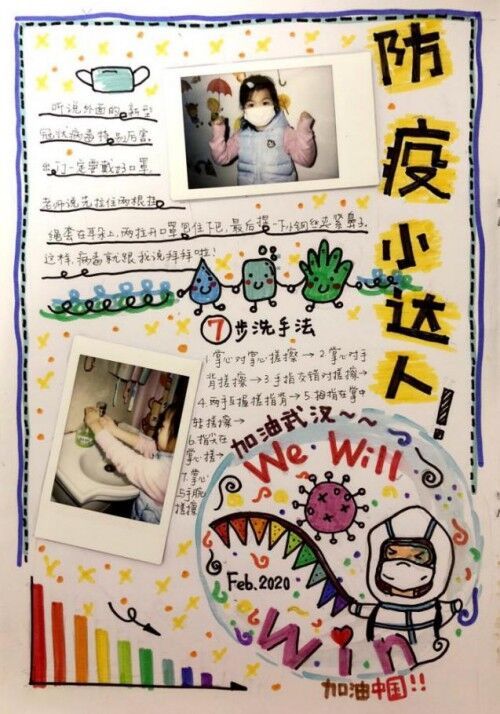 防疫小达人!
听说外面的新型
冠状病毒特别厉害,
出门一定要戴好口罩,
老师说先拉住两根挂
绳套在耳朵上,两拉开口罩包住下巴,最后摁一下小钢丝夹紧鼻子,
这样,病毒就跟我说拜拜啦!
7步洗手法
1.掌心对掌心搓擦→2.掌心对手
背搓擦→3手指交错对搓擦→
4.两手互握搓指背→5.拇指在掌中
转搓擦→
6.指尖在
掌心搓→
7.掌心
与手腕
搓擦
加油武汉~~
We Will
Feb.2020
Win
加油中国!!